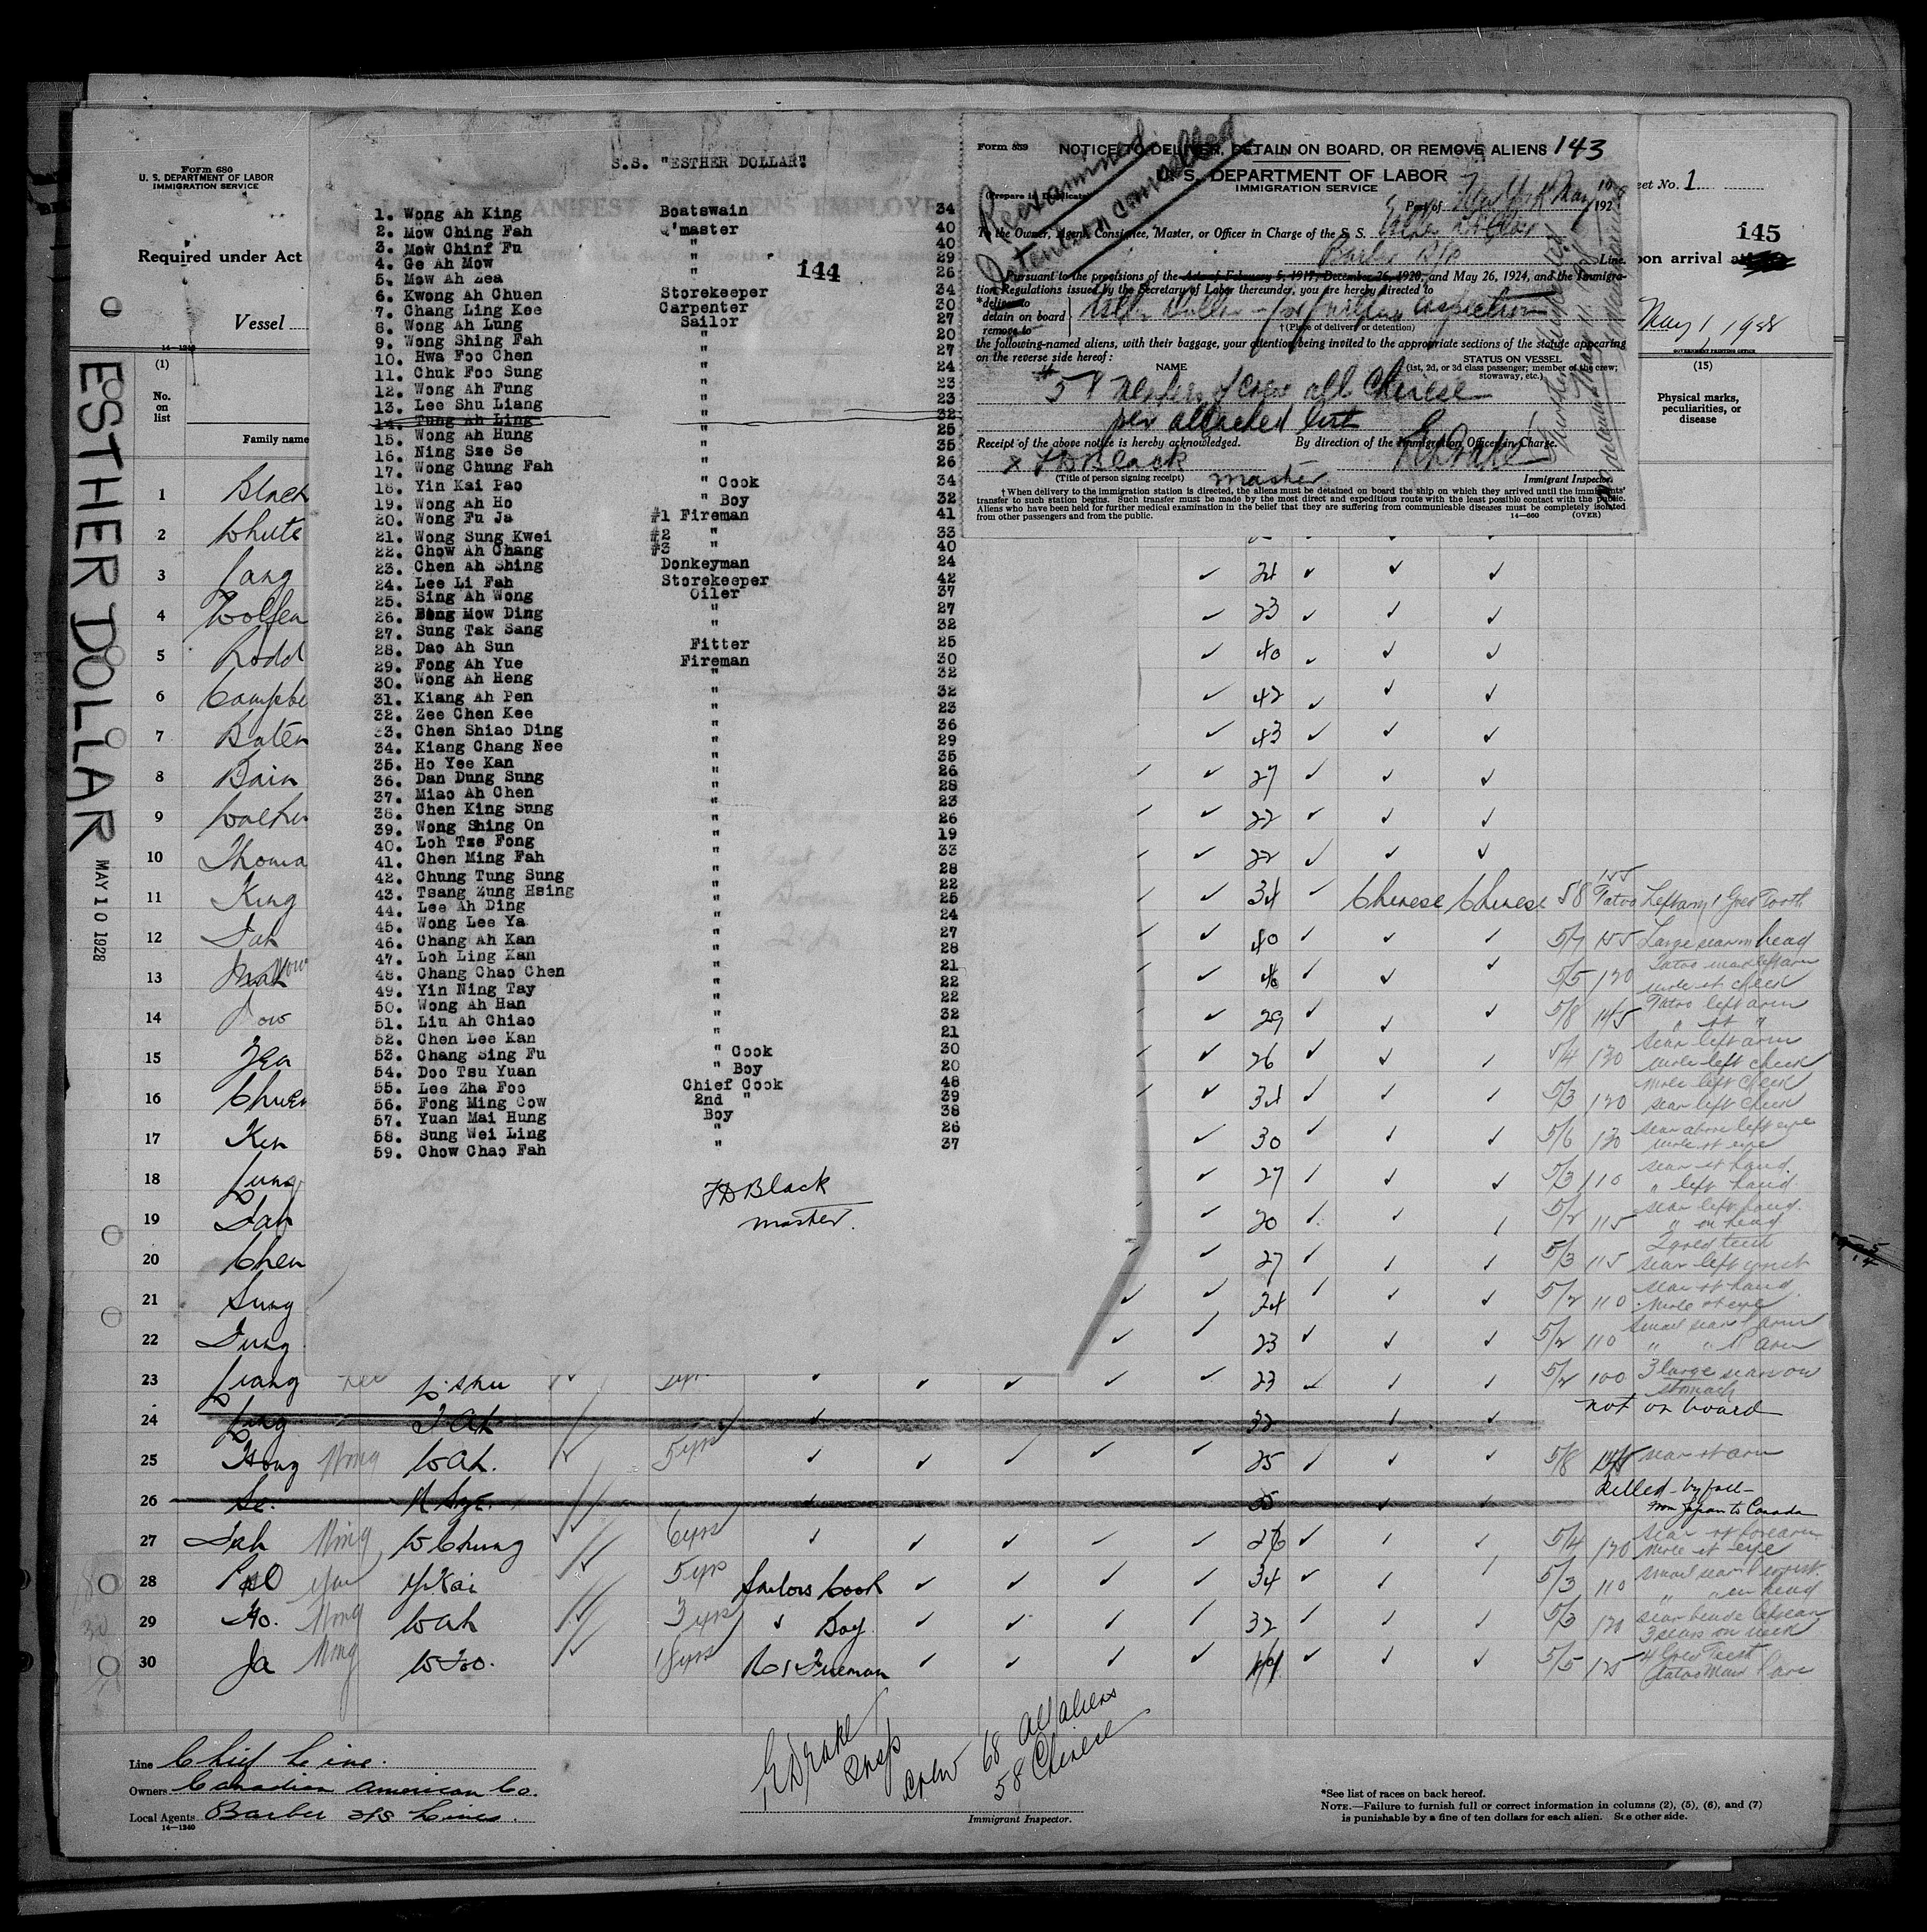 Form 680
U. S. DEPARTMENT OF LABOR
IMMIGRATION SERVICE
Required under Act
Vessel
14—1240
(1)
No.
on
list
Family name
ESTHER DOLLAR
MAY 10 1928
S.S. "ESTHER DOLLAR"
144
1. Wong Ah King Boatswain 34
2. Mow Ching Fah Q'master 40
3. Mow Chinf Fu " 40
4. Ge Ah Mow " 29
5. Mow Ah Zea " 26
6. Kwong Ah Chuen Storekeeper 34
7. Chang Ling Kee Carpenter 30
8. Wong Ah Lung Sailor 27
9. Wong Shing Fah " 20
10. Hwa Foo Chen " 27
11. Chuk Foo Sung " 24
12. Wong Ah Fung " 23
13. Lee Shu Liang " 23
14. Tung Ah Ling " 32
15. Wong Ah Hung " 25
16. Ning Sze Se " 35
17. Wong Chung Fah " 26
18. Yin Kai Pao " Cook 34
19. Wong Ah Ho " Boy 32
20. Wong Fu Ja #1 Fireman 41
21. Wong Sung Kwei #2 " 33
22. Chow Ah Chang #3 " 40
23. Chen Ah Shing Donkeyman 24
24. Lee Li Fah Storekeeper 42
25. Sing Ah Wong Oiler 37
26. Mow Ding " 27
27. Sung Tak Sang " 32
28. Dao Ah Sun Fitter 25
29. Fong Ah Yue Fireman 30
30. Wong Ah Heng " 32
31. Kiang Ah Pen " 32
32. Zee Chen Kee " 23
33. Chen Shiao Ding " 36
34. Kiang Chang Nee " 29
35. Ho Yee Kan " 35
36. Dan Dung Sung " 26
37. Miao Ah Chen " 28
38. Chen King Sung " 23
39. Wong Shing On " 26
40. Loh Tze Fong " 19
41. Chen Ming Fah " 33
42. Chung Tung Sung " 28
43. Tsang Zung Hsing " 22
44. Lee Ah Ding " 25
45. Wong Lee Ya " 24
46. Chang Ah Kan " 27
47. Loh Ling Kan " 28
48. Chang Chao Chen " 21
49. Yin Ning Tay " 22
50. Wong Ah Han " 22
51. Liu Ah Chiao " 32
52. Chen Lee Kan " 21
53. Chang Sing Fu " Cook 30
54. Doo Tsu Yuan " Boy 20
55. Lee Zha Foo Chief Cook 48
56. Fong Ming Cow 2nd " 39
57. Yuan Mai Hung Boy 38
58. Sung Wei Ling " 26
59. Chow Chao Fah " 37
FD Black
Master.
Form 559 NOTICE TO DELIVER, DETAIN ON BOARD, OR REMOVE ALIENS 143
U. S. DEPARTMENT OF LABOR
IMMIGRATION SERVICE
(Prepare in Duplicate)
Reexamined
Detention cancelled
Port of New York May 10 192
To the Owner, Agent, Consignee, Master, or Officer in Charge of the S. S. Esther Dollar
Barber S/S Line.
Pursuant to the provisions of the Acts of February 5, 1917, December 26, 1920, and May 26, 1924, and the Immigra-
tion Regulations issued by the Secretary of Labor thereunder, you are hereby directed to
*deliver to
detain on board
remove to
Esther Dollar - for further inspection
†(Place of delivery or detention)
the following-named aliens, with their baggage, your attention being invited to the appropriate sections of the statute appearing
on the reverse side hereof:
NAME
STATUS ON VESSEL
(1st, 2d, or 3d class passenger; member of the crew;
stowaway, etc.)
58 members of crew all Chinese
per attached list
Receipt of the above notice is hereby acknowledged. By direction of the Immigration Officer in Charge.
x FD Black Master EDrake
(Title of person signing receipt) Immigrant Inspector.
†When delivery to the immigration station is directed, the aliens must be detained on board the ship on which they arrived until the immigrants'
transfer to such station begins. Such transfer must be made by the most direct and expeditious route with the least possible contact with the public.
Aliens who have been held for further medical examination in the belief that they are suffering from communicable diseases must be completely isolated
from other passengers and from the public. 14—660 (OVER)
eet No. 1
145
on arrival at
May 1, 1928
GOVERNMENT PRINTING OFFICE
(15)
Physical marks,
peculiarities, or
disease
1 Black
2 White
3 Jang 24
4 Wolfen 23
5 Rodd 40
6 Campbe 42
7 Baten 43
8 Bain 27
9 Walker 22
10 Thoma 22
11 King 34 Chinese Chinese 58 155 Tatoo Left arm 1 Gold Tooth
12 Fah 40 5/7 155 Large scar on head
13 Mow 40 5/5 120 Tatoo left arm
mole rt cheek
14 Mow 29 5/8 145 Tatoo left arm
" rt "
15 Zea 26 5/4 130 scar left arm
mole left cheek
16 Chuen 34 5/3 120 mole left cheek
scar left cheek
17 Kee 30 5/6 130 scar above left eye
mole rt eye
18 Lung 27 5/3 110 scar rt hand.
" left hand.
19 Fah 20 5/2 115 scar left hand.
" on head
20 Chen 27 5/3 115 2 gold teeth
scar left wrist
21 Sung 24 5/2 110 scar rt hand.
mole rt eye
22 Fung 23 5/2 110 small scar l arm
" " r arm
23 Liang Lee L. Shu 23 5/2 100 3 large scars on
stomach
24 Ling T Ah 32 not on board
25 Hung Wong W Ah. 5yrs 25 5/8 145 scar rt arm
26 Se. N Sze. 35 Killed - by fall -
from Japan to Canada
27 Fah Wong W Chung 6yrs 26 5/4 120 scar rt forearm
mole rt eye
28 Pao Yin Y Kai 5yrs Sailors Cook 34 5/3 110 small scar r wrist.
" on head
29 Ho. Wong W Ah 3yrs " Boy 32 5/3 120
3 scars on neck
30 Ja Wong W Foo. 18yrs No 1 Fireman 41 5/5 125 4 Gold Teeth
Line Chief Line.
Owners Canadian American Co.
Local Agents Barber S/S Lines.
14—1240
EDrake
Insp
Crew 68 all aliens
58 Chinese
Immigrant Inspector.
*See list of races on back hereof.
NOTE.—Failure to furnish full or correct information in columns (2), (5), (6), and (7)
is punishable by a fine of ten dollars for each alien. See other side.